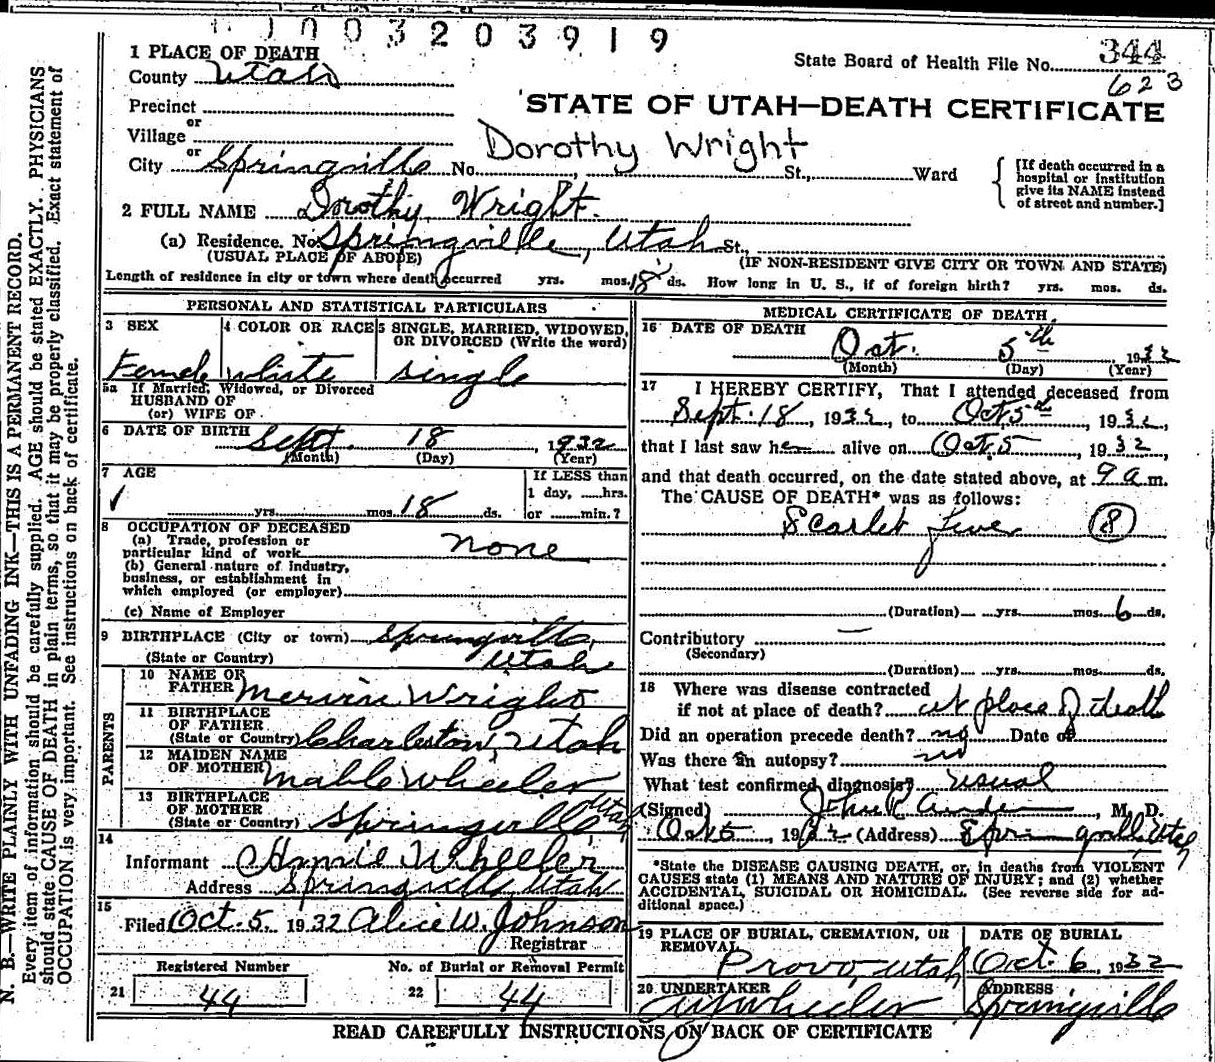 1003203919
1 PLACE OF DEATH
County Utah
State Board of Health File No. 344
623
Precinct
STATE OF UTAH—DEATH CERTIFICATE
or
Village
Dorothy Wright
or
City Springville No. , St., Ward
[If death occurred in a hospital or institution give its NAME instead of street and number.]
2 FULL NAME Dorothy Wright.
(a) Residence. No. Springville, Utah St.,
(USUAL PLACE OF ABODE) (IF NON-RESIDENT GIVE CITY OR TOWN AND STATE)
Length of residence in city or town where death occurred yrs. mos. 18 ds. How long in U. S., if of foreign birth? yrs. mos. ds.
PERSONAL AND STATISTICAL PARTICULARS
3 SEX
Female
4 COLOR OR RACE
white
5 SINGLE, MARRIED, WIDOWED,
OR DIVORCED (Write the word)
single
5a If Married, Widowed, or Divorced
HUSBAND OF
(or) WIFE OF
6 DATE OF BIRTH Sept. 18, 1932
(Month) (Day) (Year)
7 AGE
yrs. mos. 18 ds.
If LESS than
1 day, hrs.
or min.?
8 OCCUPATION OF DECEASED
(a) Trade, profession or
particular kind of work none
(b) General nature of industry,
business, or establishment in
which employed (or employer)
(c) Name of Employer
9 BIRTHPLACE (City or town) Springville,
(State or Country) Utah
PARENTS
10 NAME OF
FATHER Mervin Wright
11 BIRTHPLACE
OF FATHER
(State or Country) Charleston, Utah
12 MAIDEN NAME
OF MOTHER Mable Wheeler
13 BIRTHPLACE
OF MOTHER
(State or Country) Springville Utah
14
Informant Wheeler
Address Springville, Utah
15
Filed Oct. 5, 1932 Alice W. Johnson
Registrar
Registered Number
21 44
No. of Burial or Removal Permit
22 44
MEDICAL CERTIFICATE OF DEATH
16 DATE OF DEATH
Oct. 5th, 1932
(Month) (Day) (Year)
17 I HEREBY CERTIFY, That I attended deceased from
Sept. 18, 1932, to Oct. 5th, 1932,
that I last saw her alive on Oct. 5, 1932,
and that death occurred, on the date stated above, at 9 a m.
The CAUSE OF DEATH* was as follows:
Scarlet fever (8)
(Duration) yrs. mos. 6 ds.
Contributory —
(Secondary)
(Duration) yrs. mos. ds.
18 Where was disease contracted
if not at place of death? at place of death
Did an operation precede death? no Date of
Was there an autopsy? no
What test confirmed diagnosis? usual
(Signed) , M. D.
Oct 5, 1932 (Address) Springville Utah
*State the DISEASE CAUSING DEATH, or, in deaths from VIOLENT
CAUSES state (1) MEANS AND NATURE OF INJURY; and (2) whether
ACCIDENTAL, SUICIDAL OR HOMICIDAL. (See reverse side for ad-
ditional space.)
19 PLACE OF BURIAL, CREMATION, OR
REMOVAL
Provo, Utah
DATE OF BURIAL
Oct. 6, 1932
20 UNDERTAKER
Wheeler
ADDRESS
Springville
READ CAREFULLY INSTRUCTIONS ON BACK OF CERTIFICATE
N. B.—WRITE PLAINLY WITH UNFADING INK—THIS IS A PERMANENT RECORD.
Every item of information should be carefully supplied. AGE should be stated EXACTLY. PHYSICIANS
should state CAUSE OF DEATH in plain terms, so that it may be properly classified. Exact statement of
OCCUPATION is very important. See instructions on back of certificate.